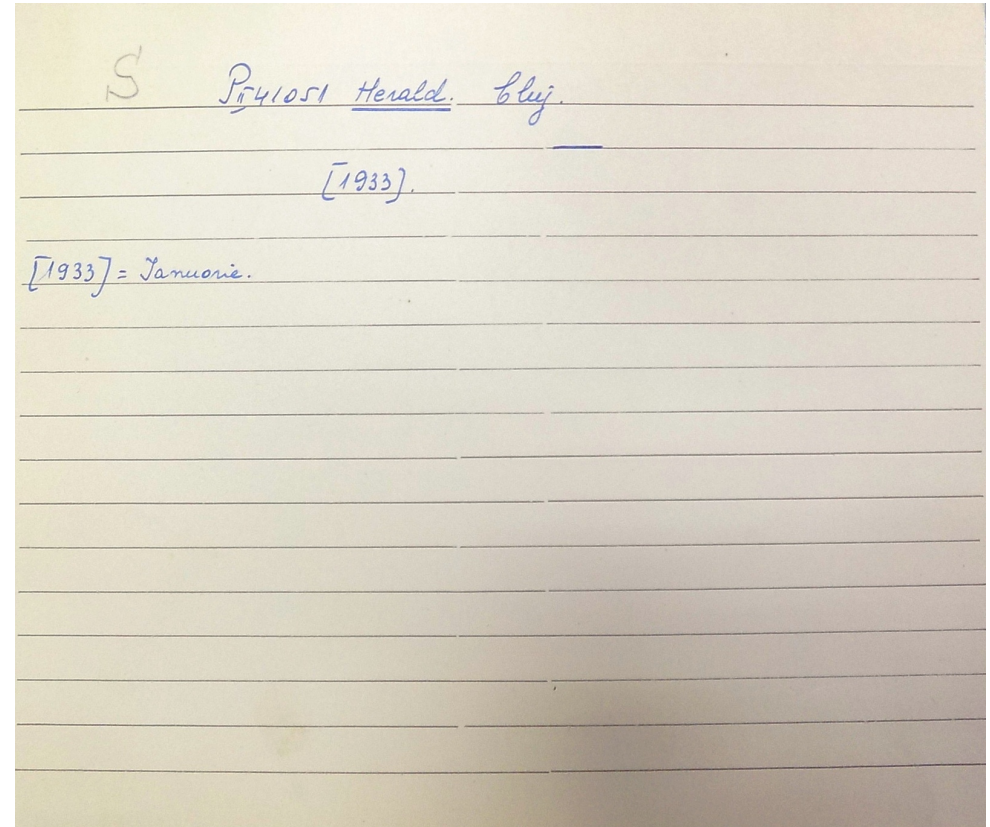 S PII 41051 Herald. Cluj.
[1933].
[1933] = Ianuarie.